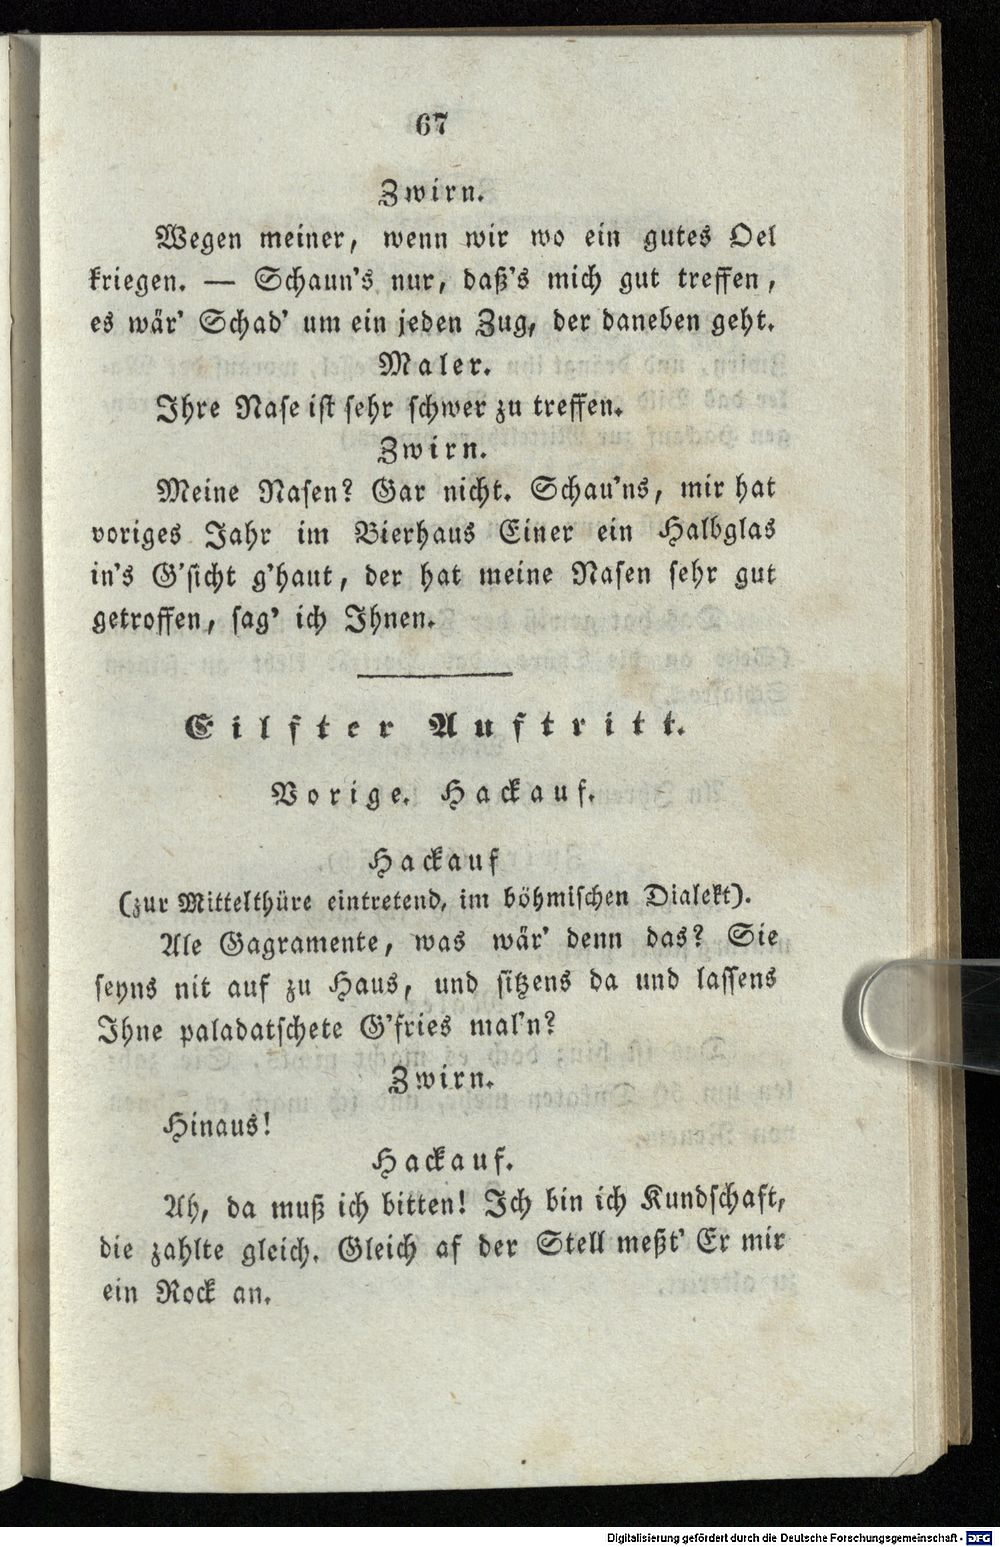 67
Zwirn.
Wegen meiner, wenn wir wo ein gutes Oel
kriegen. — Schaun's nur, daß's mich gut treffen,
es wär' Schad' um ein jeden Zug, der daneben geht.
Maler.
Ihre Nase ist sehr schwer zu treffen.
Zwirn.
Meine Nasen? Gar nicht. Schau'ns, mir hat
voriges Jahr im Bierhaus Einer ein Halbglas
in's G'sicht g'haut, der hat meine Nasen sehr gut
getroffen, sag' ich Ihnen.
Eilfter Auftritt.
Vorige. Hackauf.
Hackauf
(zur Mittelthüre eintretend, im böhmischen Dialekt).
Ale Gagramente, was wär' denn das? Sie
seyns nit auf zu Haus, und sitzens da und lassens
Ihne paladatschete G'fries mal'n?
Zwirn.
Hinaus!
Hackauf.
Ah, da muß ich bitten! Ich bin ich Kundschaft,
die zahlte gleich. Gleich af der Stell meßt' Er mir
ein Rock an.
Digitalisierung gefördert durch die Deutsche Forschungsgemeinschaft - DFG